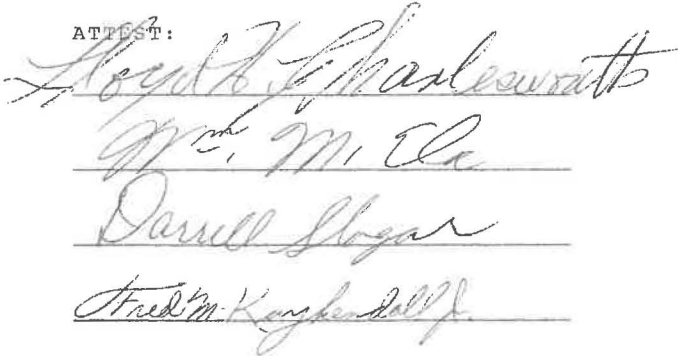 ATTEST:
Lloyd H. Charlesworth
Wm. M. Ela
Darrell Slogar
Fred M. Kuykendall Jr.